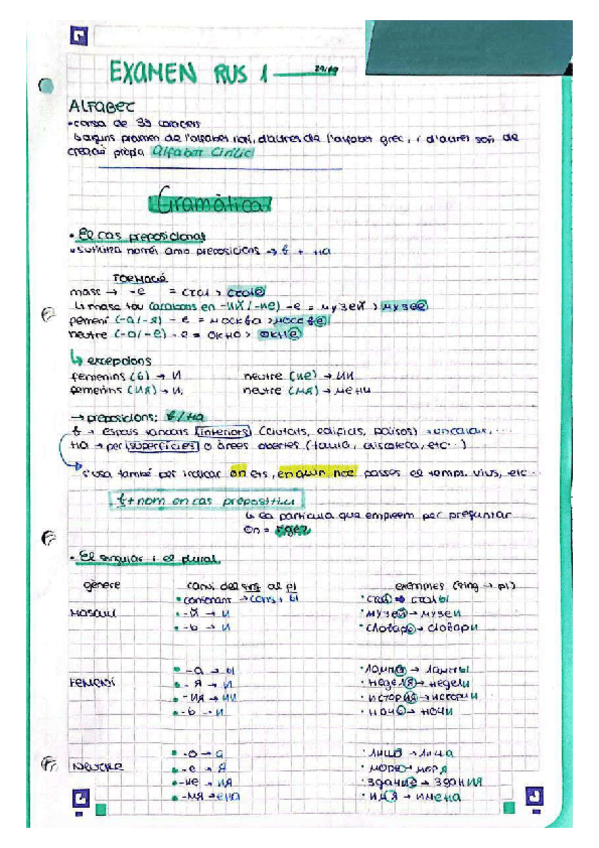 EXAMEN RUS 1
Alfabet
• consta de 33 caràcters
↳ alguns provenen de l'alfabet llatí, d'altres de l'alfabet grec, i d'altres són de
creació pròpia Alfabet Cirílic
Gramàtica
• El cas preposicional
FORMACIÓ
masc → -e = стол > столе
↳ masc tou (acabats en -ий / -ие) -e = музей > музее
femení (-а/-я) -e = москва > москве
neutre (-о/-е) -e = окно > окне
↳ excepcions
femenins (ь) → и neutre (ие) → ии
femenins (ия) → ии neutre (мя) → мени
→ preposicions: в/на
в → espais tancats (interiors) (ciutats, edificis, països)
на → per superfícies o àrees obertes (taula, discoteca, etc...)
s'usa també per indicar on ets, en quin lloc passes el temps, vius, etc
в + nom en cas prepositiu
↳ la partícula que emprem per preguntar
On = где?
• El singular i el plural
gènere canvi del sing al pl exemples (sing → pl)
• consonant → cons + ы • стол → столы
Masculí • -й → и • музей → музеи
• -ь → и • словарь → словари
• -а → ы • лампа → лампы
Femení • -я → и • неделя → недели
• -ия → ии • история → истории
• -ь → и • ночь → ночи
• -о → а • лицо → лица
Neutre • -е → я • море → моря
• -ие → ия • здание → здания
• -мя → ена • имя → имена